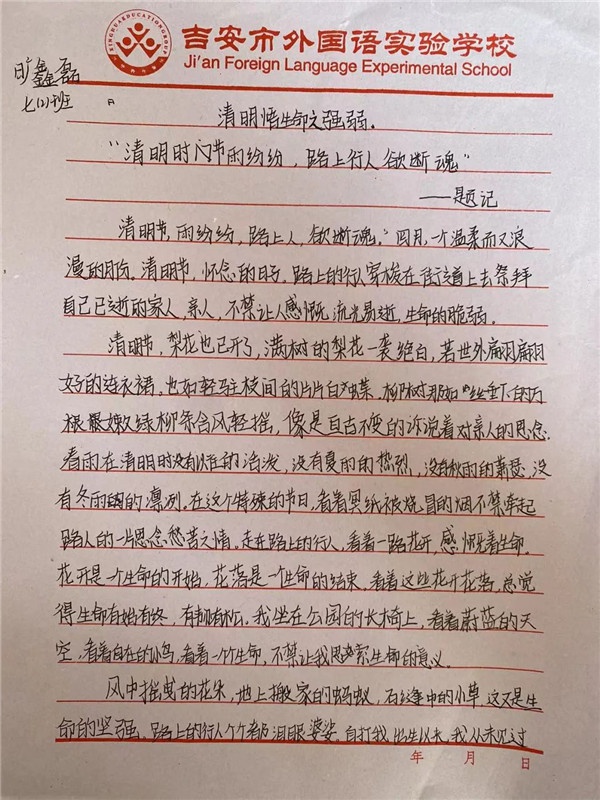 XINGHUAEDUCATIONGROUP
吉安市外国语实验学校
Ji'an Foreign Language Experimental School
旷鑫磊
七(1)班
清明悟生命之强弱。
“清明时门节雨纷纷，路上行人欲断魂”
——题记
清明节，雨纷纷，路上人，欲断魂。”四月，一个温柔而又浪
漫的月份。清明节，怀念的日子，路上的行人穿梭在街道上去祭拜
自己已逝的家人，亲人，不禁让人感慨，流光易逝，生命的脆弱。
清明节，梨花也已开了，满树的梨花一袭绝白，若世外翩翩
好的连衣裙，也如轻驻枝间的片片白蝶。柳树那如丝垂下的万
根嫩绿柳条合风轻摇，像是自古不变的诉说着对亲人的思念。
春雨在清明时没有以往的活泼，没有夏雨的热烈，没有秋雨的萧瑟，没
有冬雨的凛冽。在这个特殊的节日，看着冥纸被烧冒的烟不禁牵起
路人的一片思念愁苦之情。走在路上的行人，看着一路花开，感慨着生命。
花开是一个生命的开始，花落是一个生命的结束。看着这些花开花落，总觉
得生命有始有终，有韧有松。我坐在公园的长椅上，看着蔚蓝的天
空，看着自在的小鸟，看着一个个生命，不禁让我思索生命的意义。
风中摇曳的花朵，地上搬家的蚂蚁，石缝中的小草，这又是生
命的坚强。路上的行人个个都泪眼婆娑。自打我出生以来，我从未见过
年 月 日